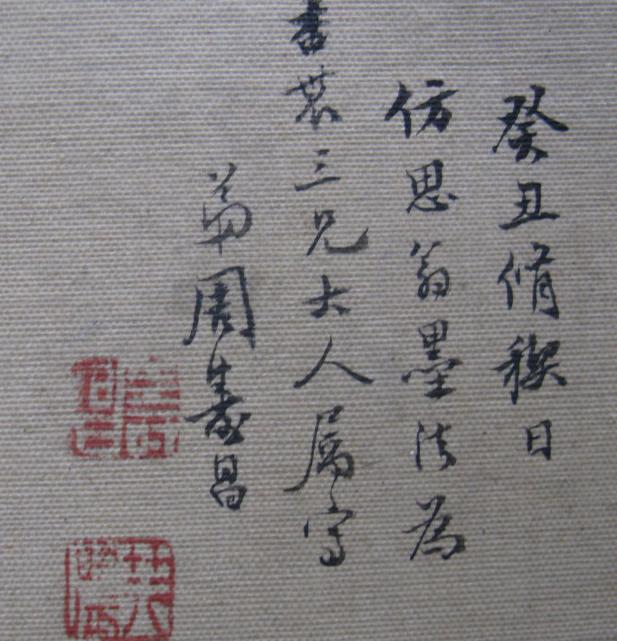 癸丑脩稧日
仿思翁墨法為
書農三兄大人属寫
弟周壽昌